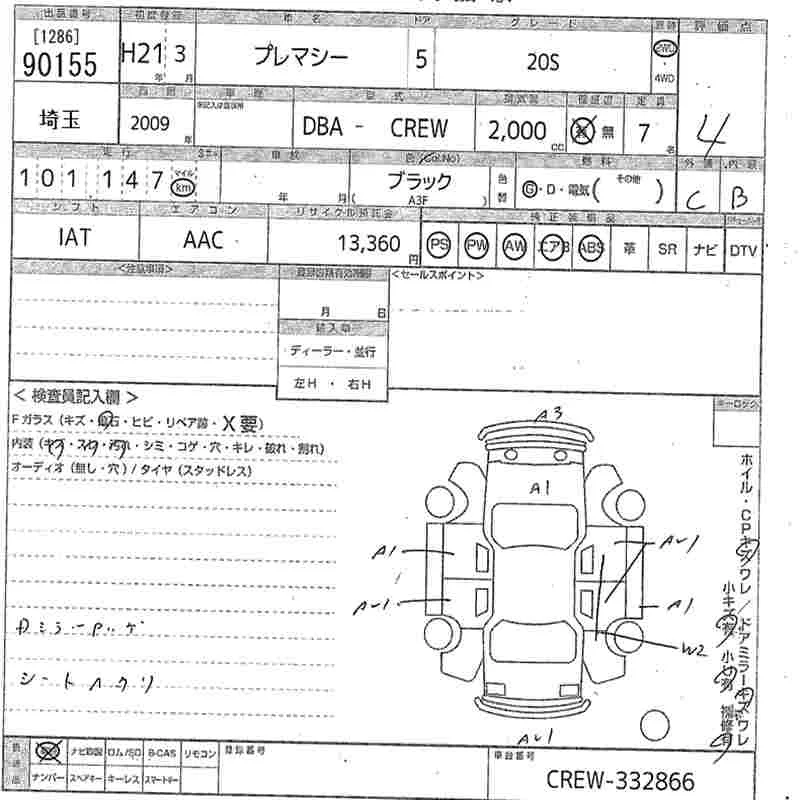 出品番号 初度登録 車名 ドア グレード 評価点
[1286]
90155 H21 3 プレマシー 5 20S 2WD
年 月 4WD
4
埼玉 2009 年 DBA - CREW 2,000 cc 無 7 名
車歴 型式 排気量 保証書 定員
走行 車検 色(Col.No) 燃料 外装 内装
101,147 マイル km 年 月 ブラック 色替 G・D・電気( その他 ) C B
( A3F )
シフト エアコン リサイクル預託金 純正装備品
IAT AAC 13,360 円 PS PW AW エアB ABS 革 SR ナビ DTV
<注意事項> <セールスポイント>
月 日
輸入車
ディーラー・並行
左H ・ 右H
< 検査員記入欄 > キーロック
Fガラス(キズ・飛石・ヒビ・リペア跡・X要)
内装(キズ・スレ・汚れ・シミ・コゲ・穴・キレ・破れ・割れ)
オーディオ(無し・穴)/タイヤ(スタッドレス)
A3
A1
A1 AU1
AU1 A1
W2
AU1
シートヘタリ
ホイル・CPキズワレ/ドアミラーキズワレ
小キズ有 小凹有 補修有
ナビ ロム/SD B-CAS リモコン 登録番号 車台番号
ナンバー スペアキー キーレス スマートキー CREW-332866